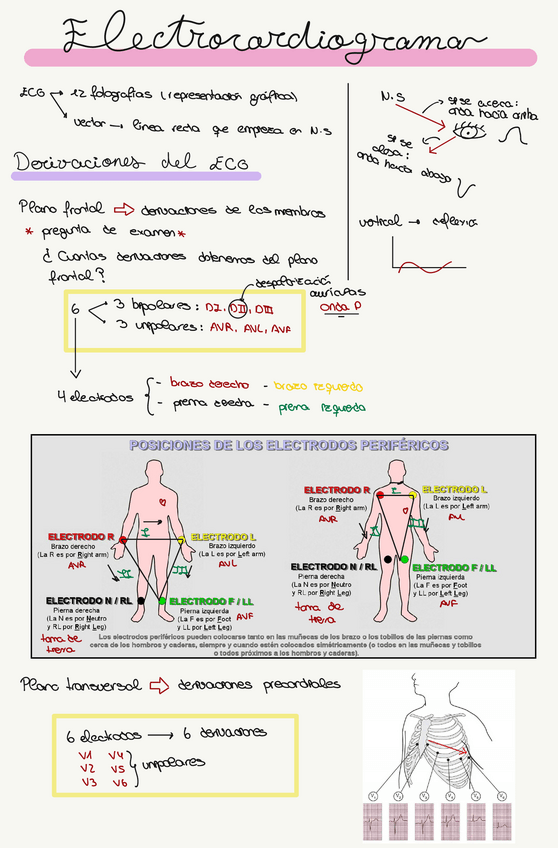 Electrocardiograma
ECG → 12 fotografías (representación gráfica)
vector → línea recta que empieza en N.S
N.S
si se acerca:
onda hacia arriba
si se
aleja:
onda hacia abajo
vertical →
Derivaciones del ECG
Plano frontal ⇒ derivaciones de los miembros
* pregunta de examen *
¿Cuántas derivaciones obtenemos del plano
frontal?
despolarización
aurículas
onda P
6
3 bipolares: DI, DII, DIII
3 unipolares: AVR, AVL, AVF
4 electrodos
- brazo derecho - brazo izquierdo
- pierna derecha - pierna izquierda
POSICIONES DE LOS ELECTRODOS PERIFÉRICOS
ELECTRODO R
Brazo derecho
(La R es por Right arm)
AVR
I
ELECTRODO L
Brazo izquierdo
(La L es por Left arm)
AVL
II
III
ELECTRODO N / RL
Pierna derecha
(La N es por Neutro
y RL por Right Leg)
toma de
tierra
ELECTRODO F / LL
Pierna izquierda
(La F es por Foot
y LL por Left Leg)
AVF
ELECTRODO R
Brazo derecho
(La R es por Right arm)
AVR
I
ELECTRODO L
Brazo izquierdo
(La L es por Left arm)
AVL
II
III
ELECTRODO N / RL
Pierna derecha
(La N es por Neutro
y RL por Right Leg)
toma de
tierra
ELECTRODO F / LL
Pierna izquierda
(La F es por Foot
y LL por Left Leg)
AVF
Los electrodos periféricos pueden colocarse tanto en las muñecas de los brazo o los tobillos de las piernas como
cerca de los hombros y caderas, siempre y cuando estén colocados simétricamente (o todos en las muñecas y tobillos
o todos próximos a los hombros y caderas).
Plano transversal ⇒ derivaciones precordiales
6 electrodos → 6 derivaciones
V1 V4
V2 V5 unipolares
V3 V6
V1 V2 V3 V4 V5 V6